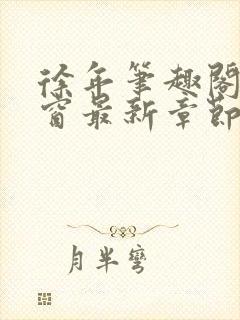 徐年笔趣阁
窗最新章节
月半弯